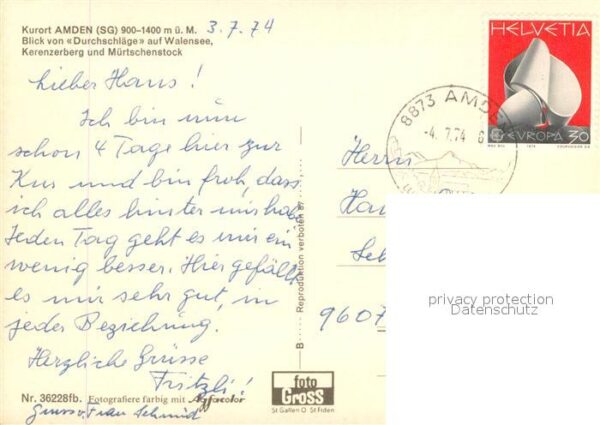 Kurort AMDEN (SG) 900-1400 m ü. M.
Blick von «Durchschläge» auf Walensee,
Kerenzerberg und Mürtschenstock
3.7.74
Lieber Hans!
Ich bin nun
schon 4 Tage hier zur
Kur und bin froh, dass
ich alles hinter mir habe
Jeden Tag geht es mir ein
wenig besser. Hier gefällt
es mir sehr gut, in
jeder Beziehung.
Herzliche Grüsse
Fritzli!
Gruss v. Frau Schmid
Nr. 36228fb. Fotografiere farbig mit Agfacolor
B
Reproduktion verboten
foto
Gross
St Gallen O St Fiden
HELVETIA
EUROPA 30
8873 AMDEN
-4.7.74
Herrn
9607
privacy protection
Datenschutz